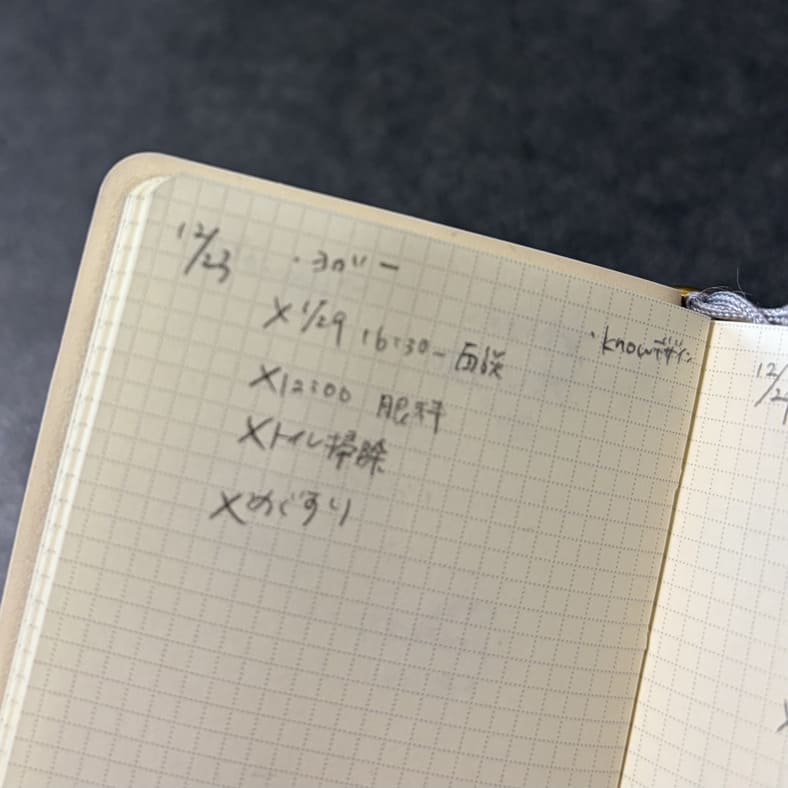 12/23
・ヨガ ー
×1/29 16:30~面談
・knowデザイン
×12:00 眼科
×トイレ掃除
×めぐすり
12/2